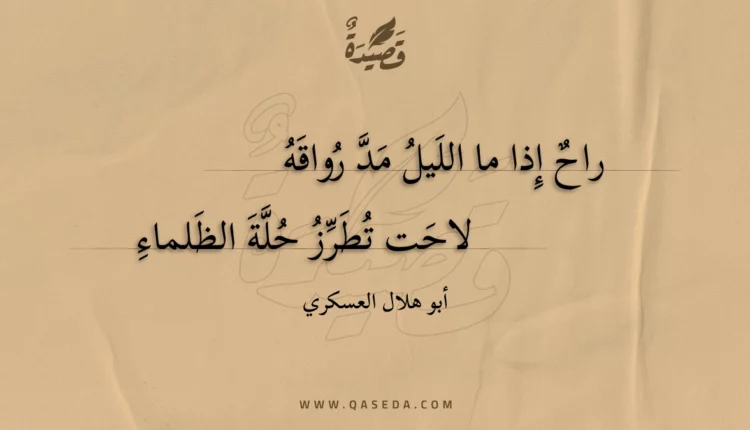 قَصِيدَةٌ
راحٌ إِذا ما اللَيلُ مَدَّ رُواقَهُ
لاحَت تُطَرِّزُ حُلَّةَ الظَلماءِ
أبو هلال العسكري
WWW.QASEDA.COM